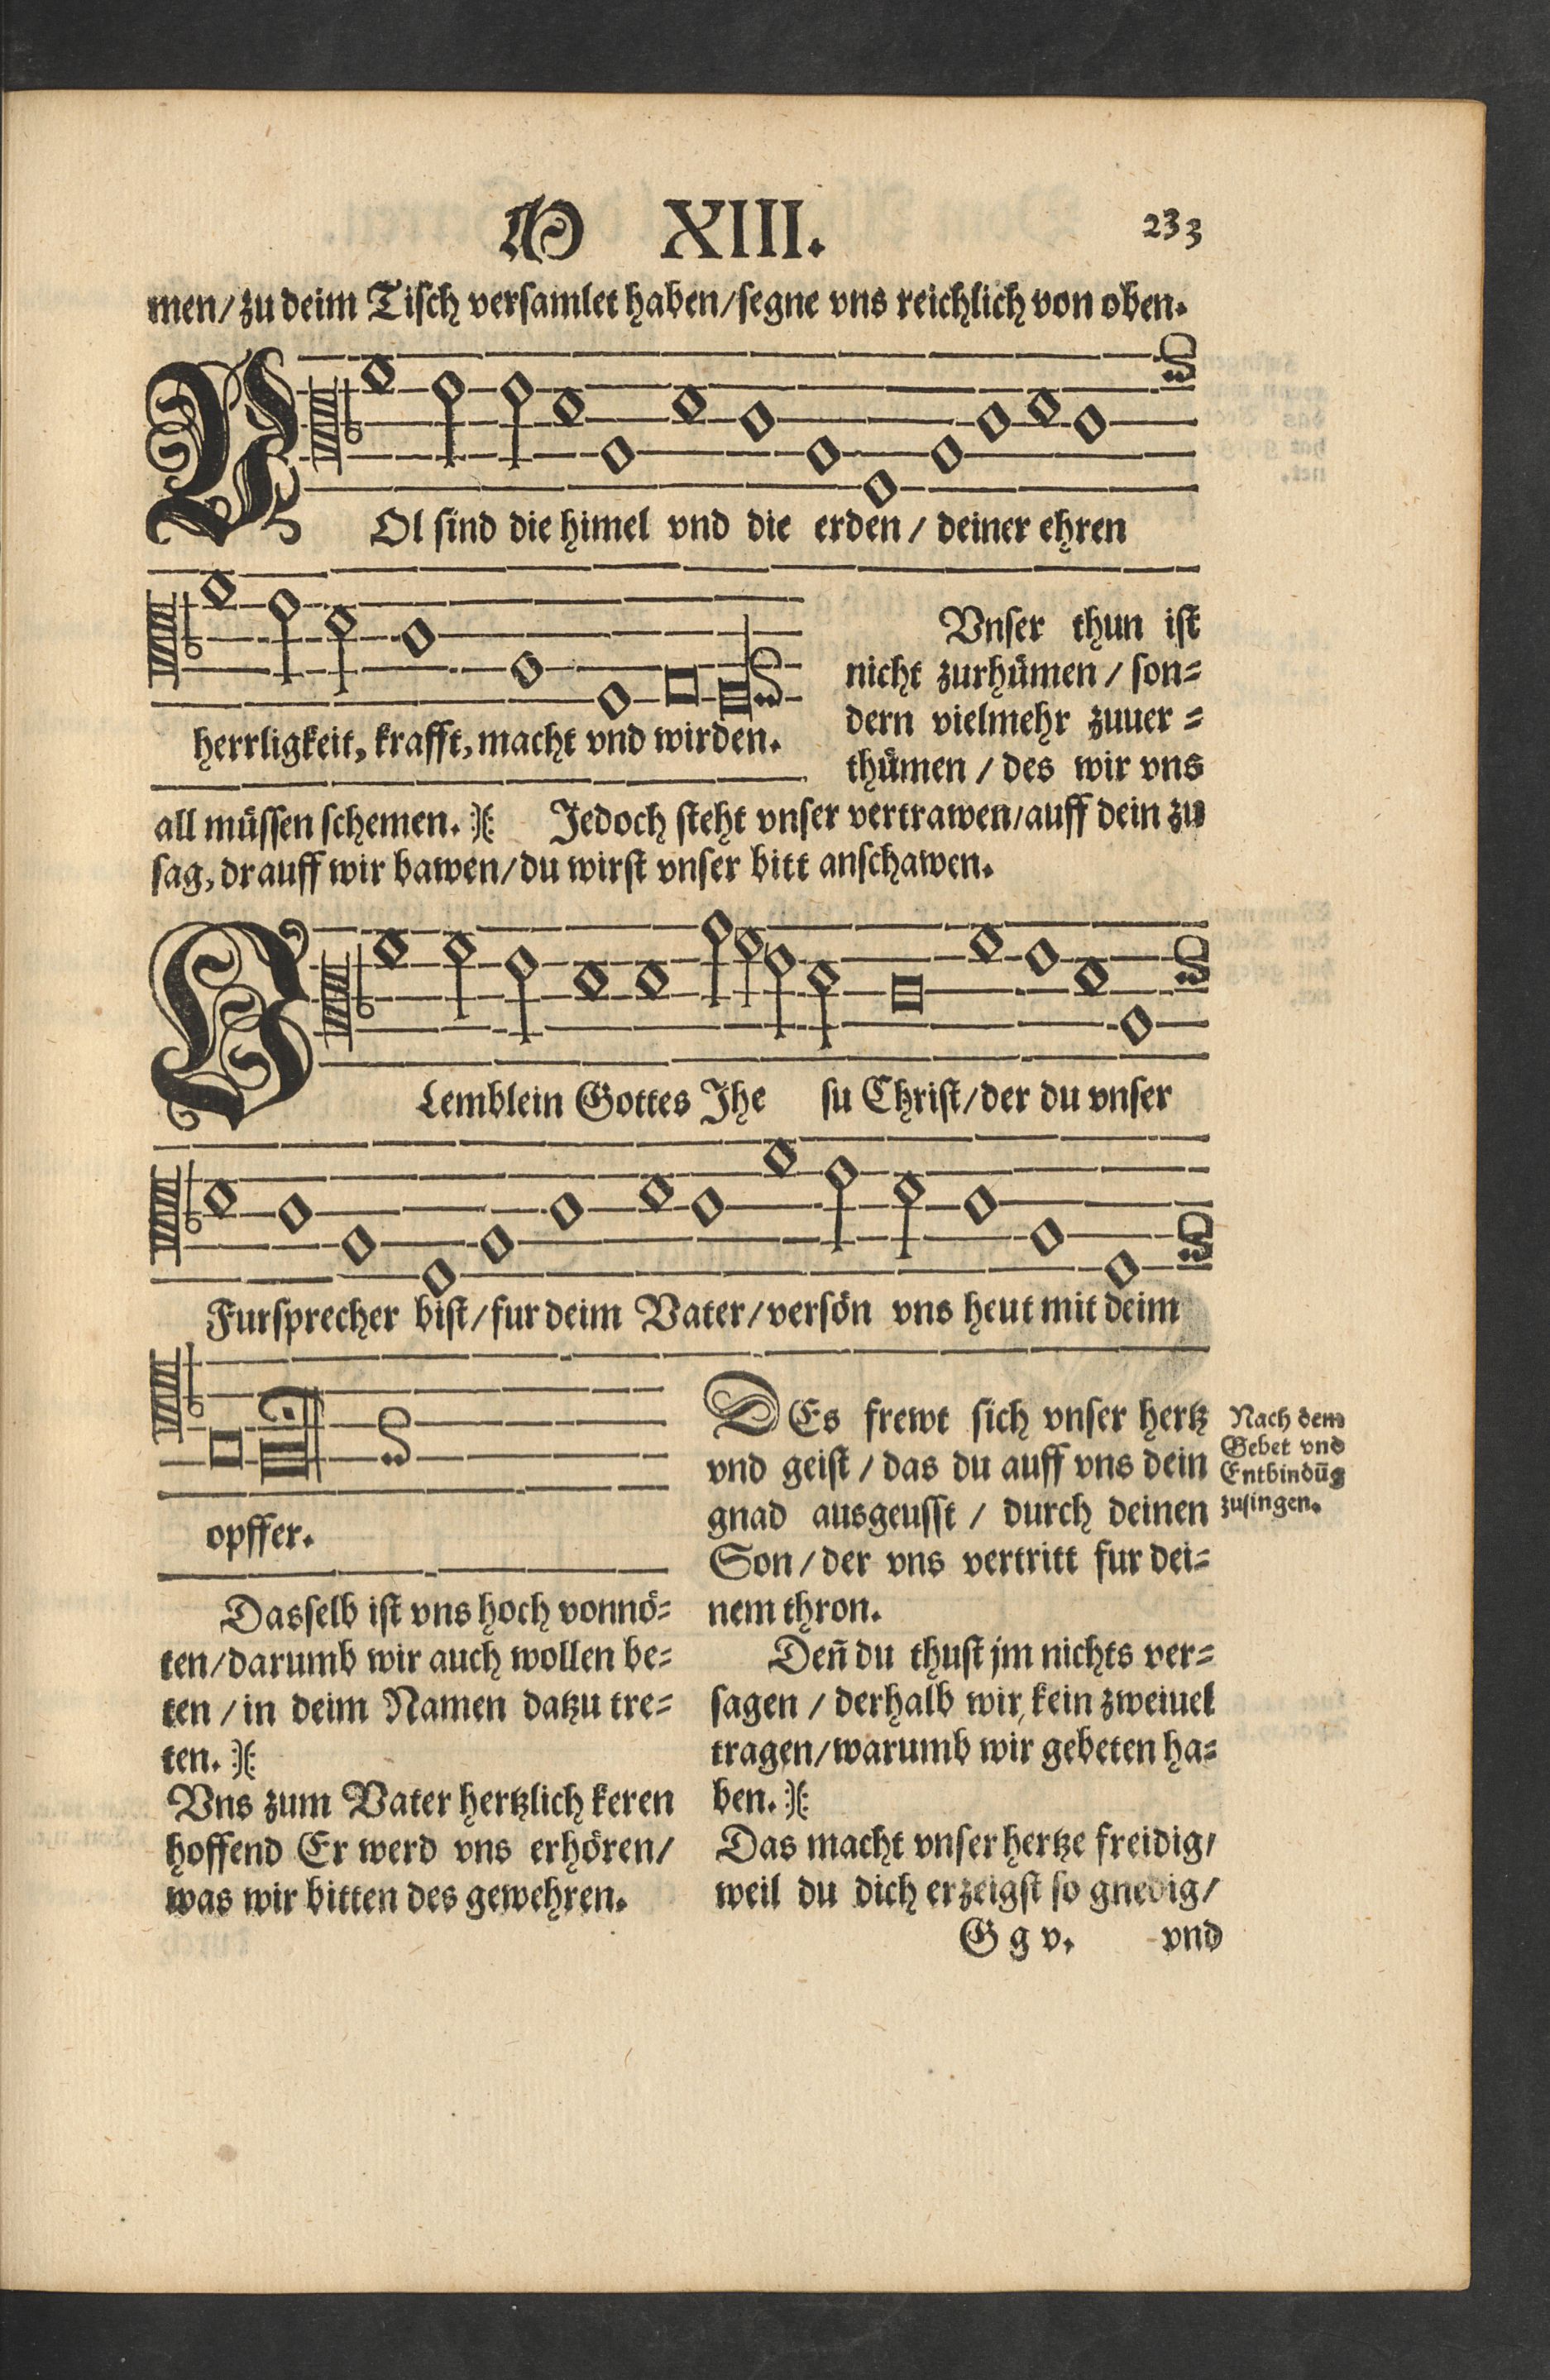 XIII. 233
men/zu deim Tisch versamlet haben/segne vns reichlich von oben.
VOl sind die himel vnd die erden / deiner ehren
herrligkeit, krafft, macht vnd wirden.
Vnser thun ist
nicht zurhuͤmen / son⸗
dern vielmehr zuuer⸗
thuͤmen / des wir vns
all muͤssen schemen. :|: Jedoch steht vnser vertrawen/auff dein zu
sag, drauff wir bawen/du wirst vnser bitt anschawen.
O Lemblein Gottes Jhe su Christ/der du vnser
Fursprecher bist/fur deim Vater/versoͤn vns heut mit deim
opffer.
Dasselb ist vns hoch vonnoͤ⸗
ten/darumb wir auch wollen be⸗
ten / in deim Namen datzu tre⸗
ten. :|:
Vns zum Vater hertzlich keren
hoffend Er werd vns erhoͤren/
was wir bitten des gewehren.
DEs frewt sich vnser hertz
vnd geist / das du auff vns dein
gnad ausgeusst / durch deinen
Son / der vns vertritt fur dei⸗
nem thron.
Deñ du thust jm nichts ver⸗
sagen / derhalb wir kein zweiuel
tragen/warumb wir gebeten ha⸗
ben. :|:
Das macht vnser hertze freidig/
weil du dich erzeigst so gnedig/
Nach dem
Gebet vnd
Entbindūg
zusingen.
G g v. vnd